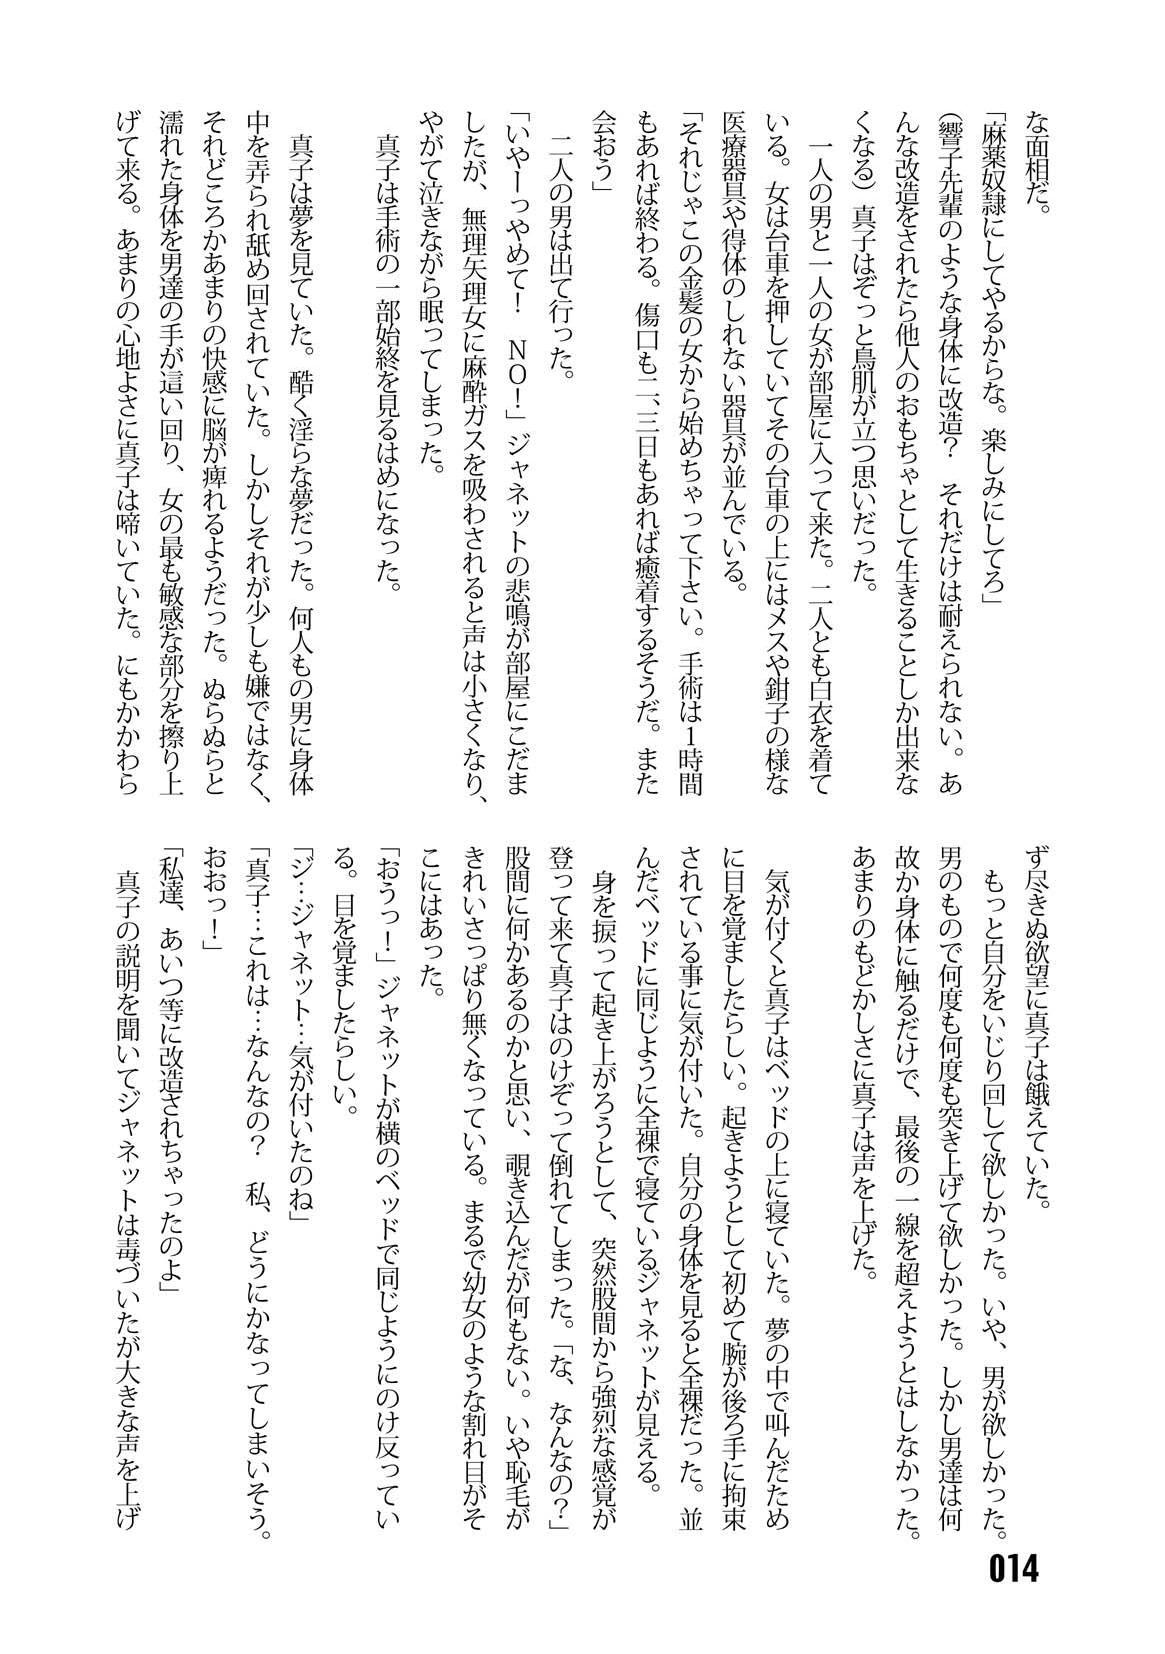 な面相だ。
「麻薬奴隷にしてやるからな。楽しみにしてろ」
(響子先輩のような身体に改造?　それだけは耐えられない。あ
んな改造をされたら他人のおもちゃとして生きることしか出来な
くなる)真子はぞっと鳥肌が立つ思いだった。
　一人の男と一人の女が部屋に入って来た。二人とも白衣を着て
いる。女は台車を押していてその台車の上にはメスや鉗子の様な
医療器具や得体のしれない器具が並んでいる。
「それじゃこの金髪の女から始めちゃって下さい。手術は1時間
もあれば終わる。傷口も二、三日もあれば癒着するそうだ。また
会おう」
　二人の男は出て行った。
「いやーっやめて!　NO!」ジャネットの悲鳴が部屋にこだま
したが、無理矢理女に麻酔ガスを吸わされると声は小さくなり、
やがて泣きながら眠ってしまった。
　真子は手術の一部始終を見るはめになった。
　真子は夢を見ていた。酷く淫らな夢だった。何人もの男に身体
中を弄られ舐め回されていた。しかしそれが少しも嫌ではなく、
それどころかあまりの快感に脳が痺れるようだった。ぬらぬらと
濡れた身体を男達の手が這い回り、女の最も敏感な部分を擦り上
げて来る。あまりの心地よさに真子は啼いていた。にもかかわら
ず尽きぬ欲望に真子は餓えていた。
　もっと自分をいじり回して欲しかった。いや、男が欲しかった。
男のもので何度も何度も突き上げて欲しかった。しかし男達は何
故か身体に触るだけで、最後の一線を超えようとはしなかった。
あまりのもどかしさに真子は声を上げた。
　気が付くと真子はベッドの上に寝ていた。夢の中で叫んだため
に目を覚ましたらしい。起きようとして初めて腕が後ろ手に拘束
されている事に気が付いた。自分の身体を見ると全裸だった。並
んだベッドに同じように全裸で寝ているジャネットが見える。
　身を捩って起き上がろうとして、突然股間から強烈な感覚が
登って来て真子はのけぞって倒れてしまった。「な、なんなの?」
股間に何かあるのかと思い、覗き込んだが何もない。いや恥毛が
きれいさっぱり無くなっている。まるで幼女のような割れ目がそ
こにはあった。
「おうっ!」ジャネットが横のベッドで同じようにのけ反ってい
る。目を覚ましたらしい。
「ジ…ジャネット…気が付いたのね」
「真子…これは…なんなの?　私、どうにかなってしまいそう。
おおっ!」
「私達、あいつ等に改造されちゃったのよ」
　真子の説明を聞いてジャネットは毒づいたが大きな声を上げ
014